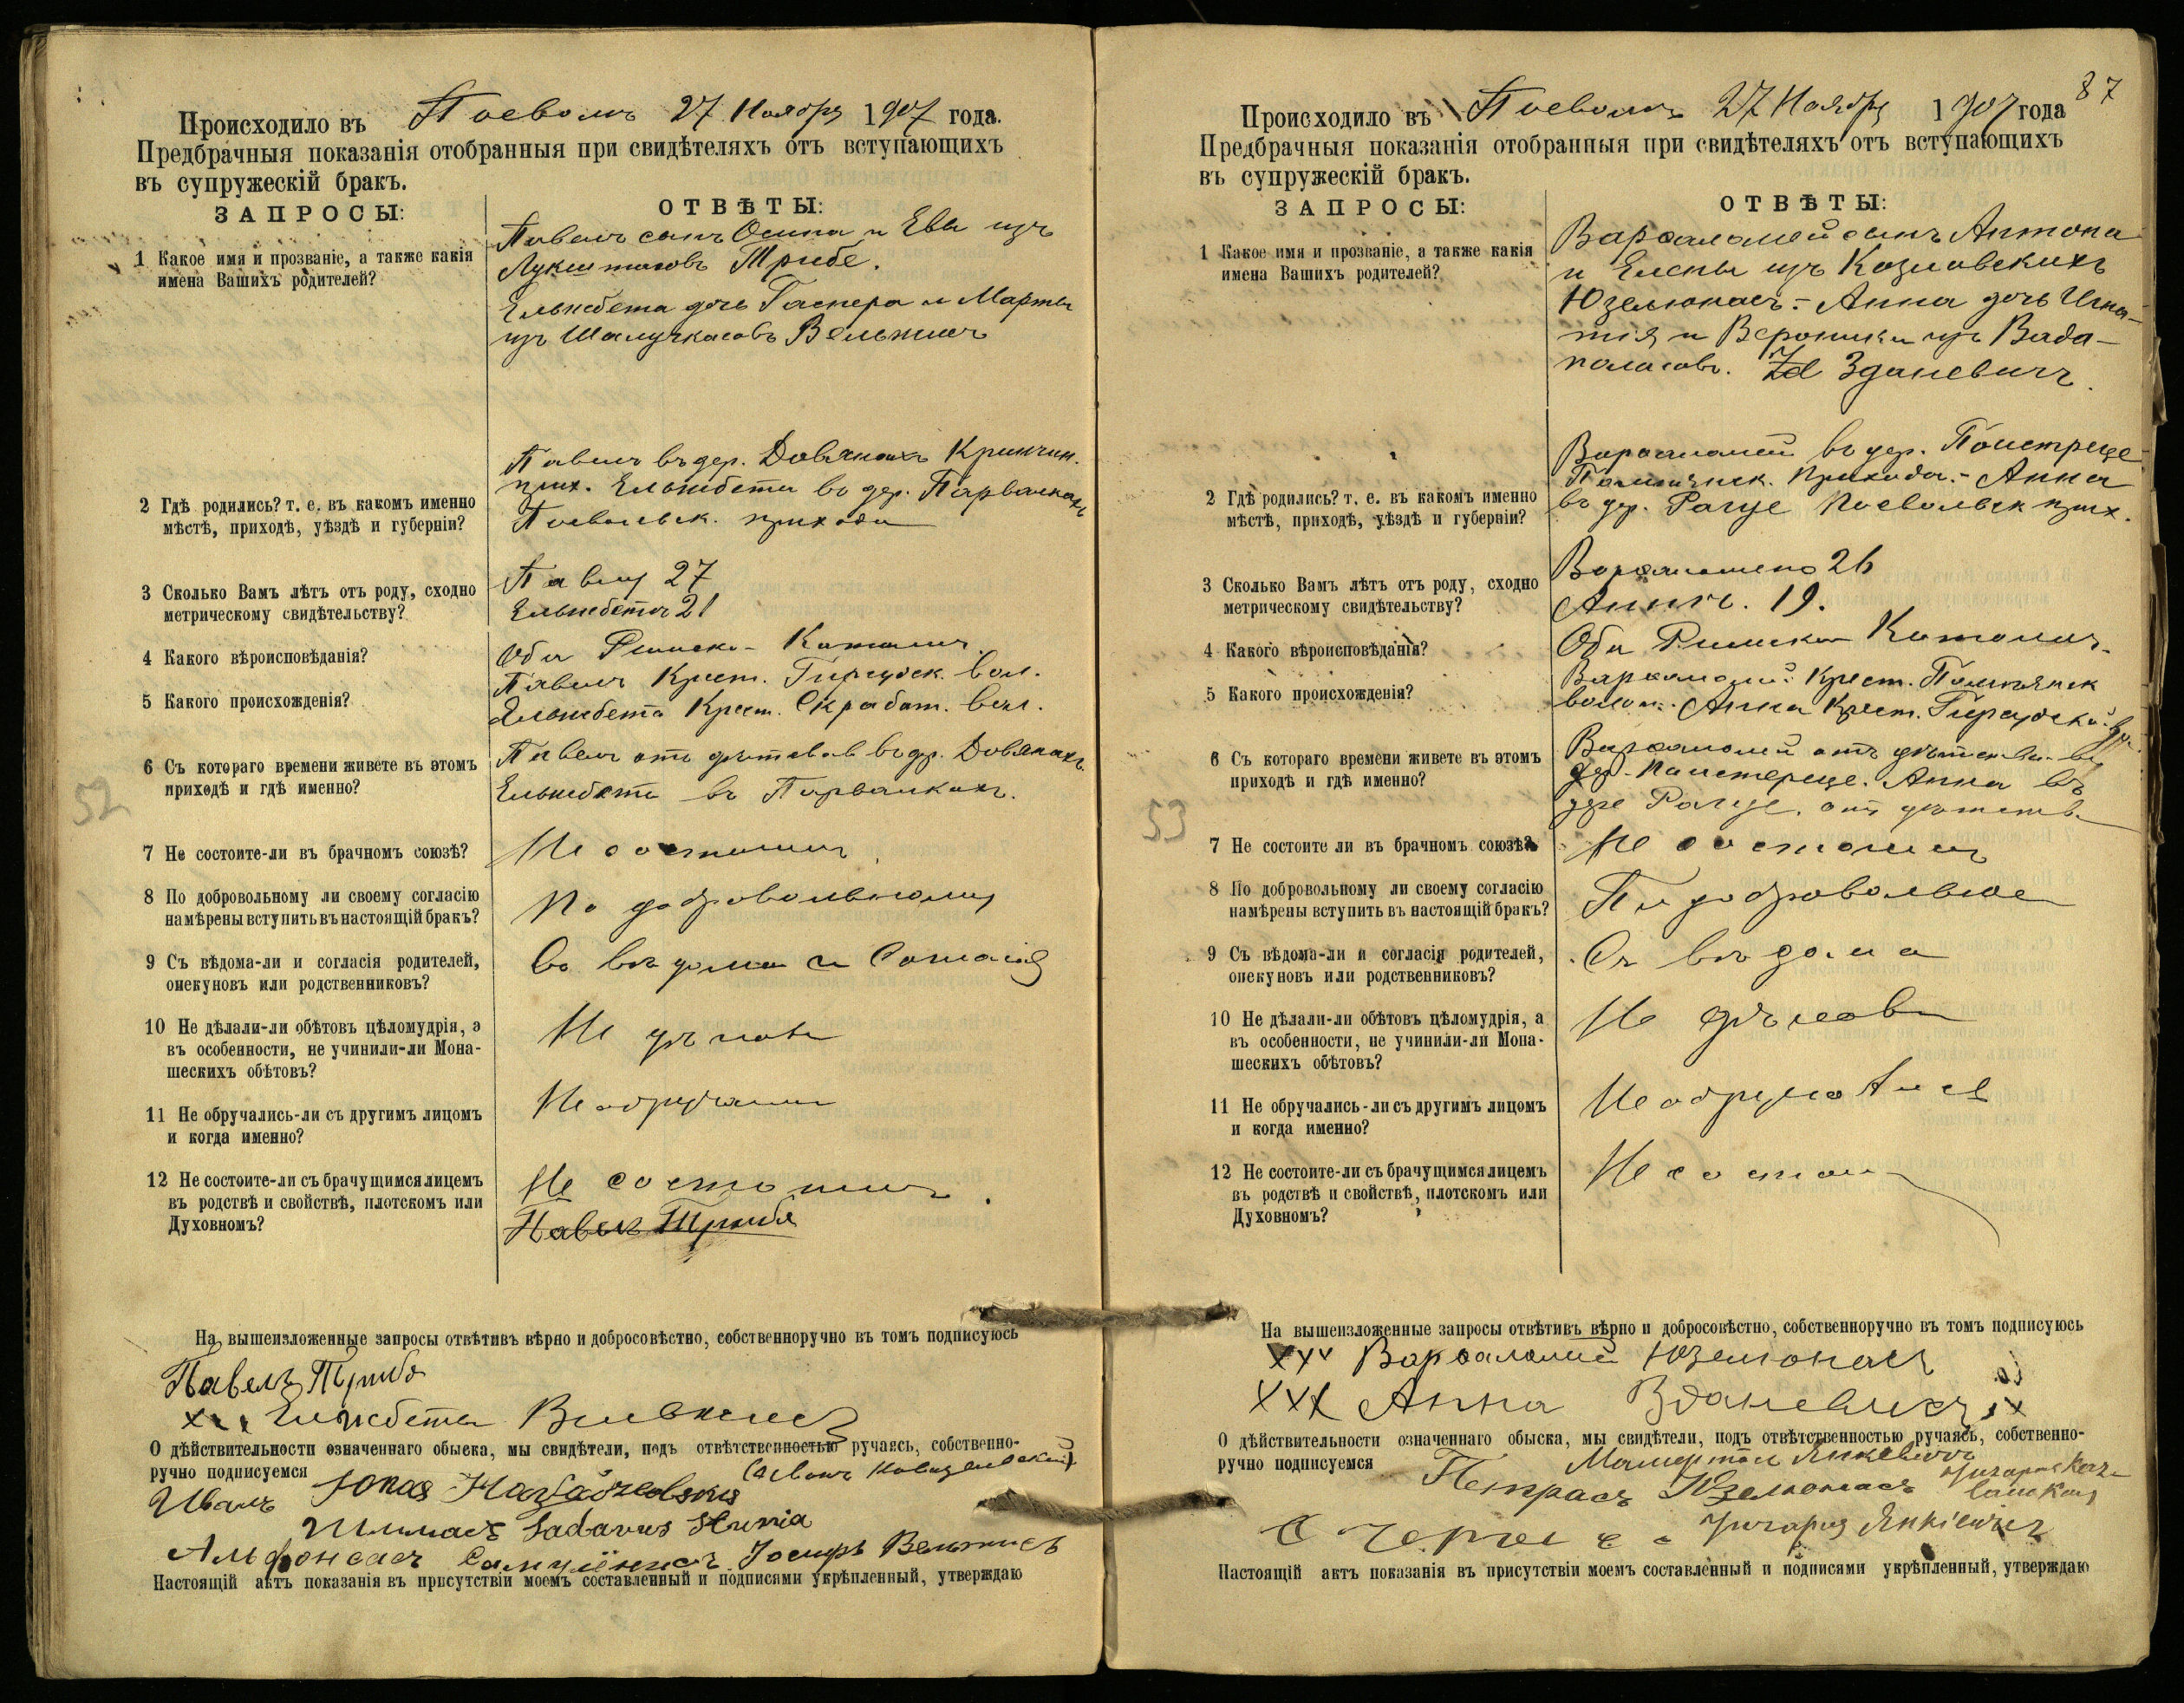 Происходило въ Поеволъ 27 Ноября 1907 года.
Предбрачныя показанія отобранныя при свидѣтеляхъ отъ вступающихъ
въ супружескій бракъ.
ЗАПРОСЫ:
ОТВѢТЫ:
1 Какое имя и прозваніе, а также какія
имена Вашихъ родителей?
Павелъ сынъ Осипа и Евы изъ
Лукштасовъ Трибе.
Ельжбета дочь Гаспера и Марты
изъ
2 Гдѣ родились? т. е. въ какомъ именно
мѣстѣ, приходѣ, уѣздѣ и губерніи?
Павелъ въ дер. Довянахъ Кринчин.
прих. Ельжбета въ дер. Парвалкахъ
Поевольск. прихода
3 Сколько Вамъ лѣтъ отъ роду, сходно
метрическому свидѣтельству?
Павлу 27
Ельжбета 21
4 Какого вѣроисповѣданія?
Оба Римско-Католич.
5 Какого происхожденія?
Павелъ Крест. Гируцск. вол.
Ельжбета Крест. Скробат. вол.
6 Съ котораго времени живете въ этомъ
приходѣ и гдѣ именно?
Павелъ отъ дѣтства въ др. Довянахъ.
Ельжбета въ Парвалкахъ.
7 Не состоите-ли въ брачномъ союзѣ?
Не состоимъ
8 По добровольному ли своему согласію
намѣрены вступить въ настоящій бракъ?
По добровольному
9 Съ вѣдома-ли и согласія родителей,
опекуновъ или родственниковъ?
Съ вѣдома и Согласія
10 Не дѣлали-ли обѣтовъ цѣломудрія, а
въ особенности, не учинили-ли Мона-
шескихъ обѣтовъ?
Не дѣлали
11 Не обручались-ли съ другимъ лицомъ
и когда именно?
Не обручались
12 Не состоите-ли съ брачущимся лицемъ
въ родствѣ и свойствѣ, плотскомъ или
Духовномъ?
Не состоимъ.
Павелъ Трибя
На вышеизложенные запросы отвѣтивъ вѣрно и добросовѣстно, собственноручно въ томъ подписуюсь
Павелъ Трибя
xxx Ельжбета
О дѣйствительности означеннаго обыска, мы свидѣтели, подъ отвѣтственностью ручаясь, собственно-
ручно подписуемся
Иванъ
Альфонсасъ Іосифъ
Настоящій актъ показанія въ присутствіи моемъ составленный и подписями укрѣпленный, утверждаю
52
87
Происходило въ Поеволъ 27 Ноября 1907 года
Предбрачныя показанія отобранныя при свидѣтеляхъ отъ вступающихъ
въ супружескій бракъ.
ЗАПРОСЫ:
ОТВѢТЫ:
1 Какое имя и прозваніе, а также какія
имена Вашихъ родителей?
Варѳаломей сынъ Антона
и Елены изъ Козловскихъ
Юзелюнасъ - Анна дочь Игна-
тія и Вероники изъ Вада-
паласовъ. Зданевичъ.
2 Гдѣ родились? т. е. въ какомъ именно
мѣстѣ, приходѣ, уѣздѣ и губерніи?
Варѳаломей въ дер. Поистреце
прихода. - Анна
въ дер. Рагце Поевольск прих.
3 Сколько Вамъ лѣтъ отъ роду, сходно
метрическому свидѣтельству?
26
Анна. 19.
4 Какого вѣроисповѣданія?
Оба Римско Католич.
5 Какого происхожденія?
Варѳаломей Крест.
волости. Анна Крест.
6 Съ котораго времени живете въ этомъ
приходѣ и гдѣ именно?
Варѳаломей отъ дѣтства въ
дер. Анна въ
дре Рагце. отъ дѣтства
7 Не состоите ли въ брачномъ союзѣ?
Не состоимъ
8 По добровольному ли своему согласію
намѣрены вступить въ настоящій бракъ?
По добровольное
9 Съ вѣдома-ли и согласія родителей,
опекуновъ или родственниковъ?
Съ вѣдома
10 Не дѣлали-ли обѣтовъ цѣломудрія, а
въ особенности, не учинили-ли Мона-
шескихъ обѣтовъ?
Не дѣлали
11 Не обручались-ли съ другимъ лицомъ
и когда именно?
Не обручались
12 Не состоите-ли съ брачущимся лицемъ
въ родствѣ и свойствѣ, плотскомъ или
Духовномъ?
Не состоимъ
На вышеизложенные запросы отвѣтивъ вѣрно и добросовѣстно, собственноручно въ томъ подписуюсь
xxx Варѳаломей Юзелюнасъ
XXX Анна Зданевичъ
О дѣйствительности означеннаго обыска, мы свидѣтели, подъ отвѣтственностью ручаясь, собственно-
ручно подписуемся
Петрасъ Юзелюнасъ
Настоящій актъ показанія въ присутствіи моемъ составленный и подписями укрѣпленный, утверждаю
53